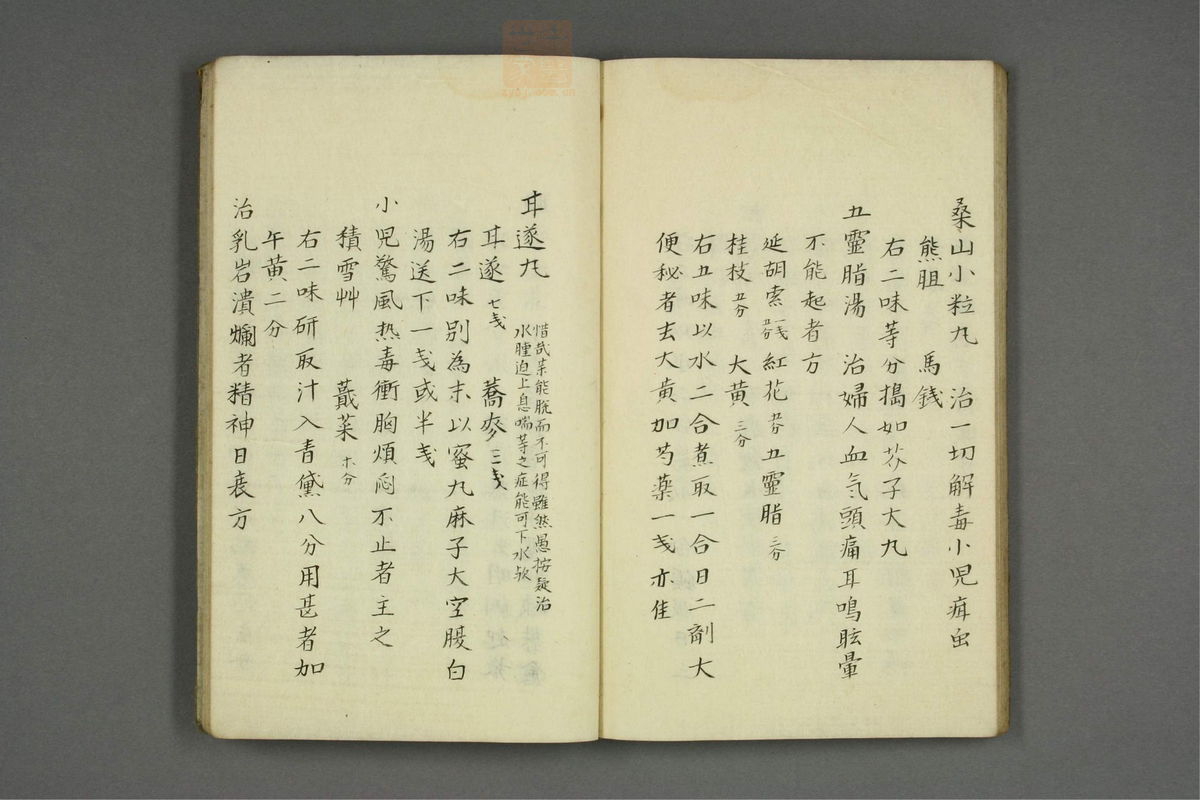 桑山小粒丸　治一切解毒小児疳虫
熊胆　馬銭
右二味等分搗如芥子大丸
五靈脂湯　治婦人血气頭痛耳鳴眩暈
不能起者方
延胡索一戔五分　紅花五分　五靈脂三分
桂枝五分　大黄三分
右五味以水二合煮取一合日二劑大
便秘者去大黄加芍藥一戔亦佳
耳遂丸　惜哉菜能脱而不可得雖然愚按疑治
水腫迫上息喘等之症能可下水欤
耳遂七戔　蕎麥三戔
右二味别為末以蜜丸麻子大空腹白
湯送下一戔或半戔
小児驚風热毒衝胸煩悶不止者主之
積雪艸　蕺菜
右二味研取汁入青黛八分用甚者加
午黄二分
治乳岩潰爛者精神日衰方